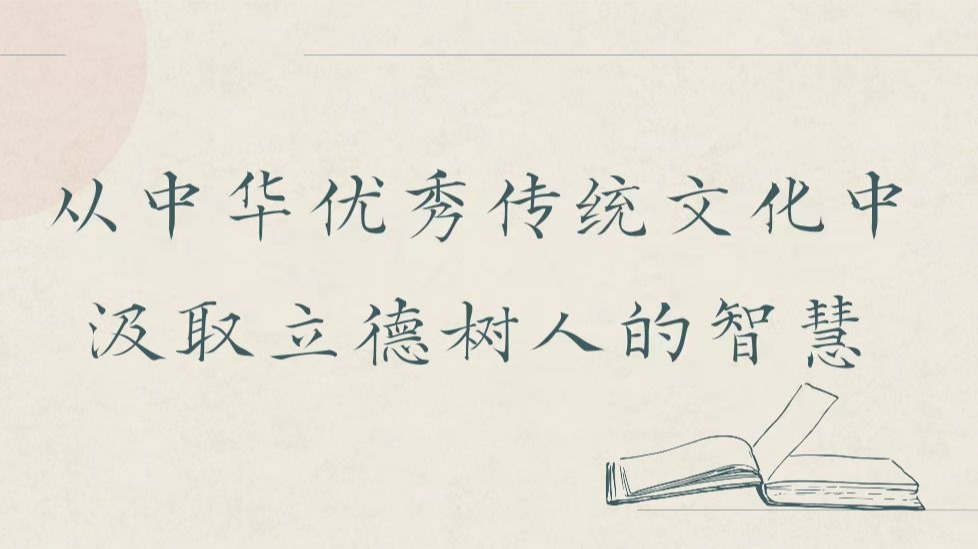 从中华优秀传统文化中
汲取立德树人的智慧